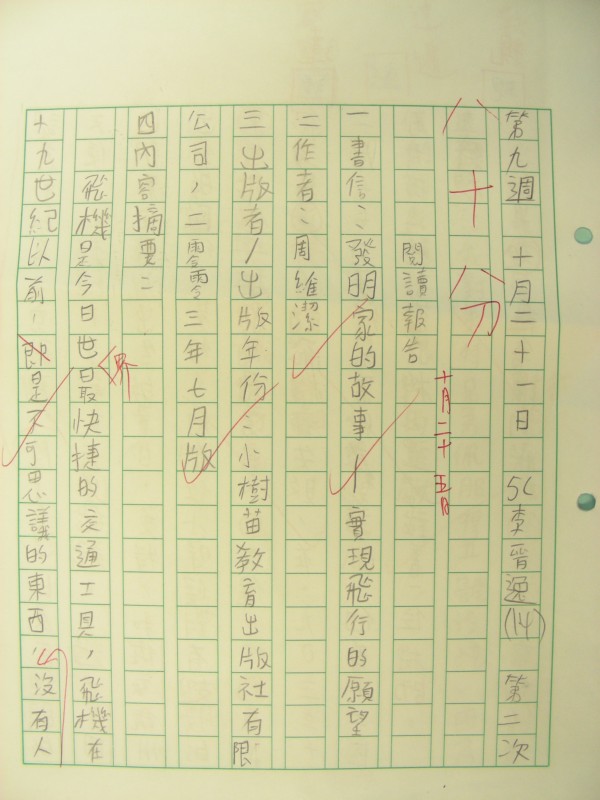 第九週 十月二十一日 5C 李晉逸(14) 第二次
八十八分
十月二十五日
閱讀報告
一書信：發明家的故事—實現飛行的願望
二作者：周維潔
三出版者/出版年份：小樹苗教育出版社有限
公司，二零零三年七月版
四內容摘要：
飛機是今日世最快捷的交通工具，飛機在
界
十九世紀以前，即是不可思議的東西，沒有人